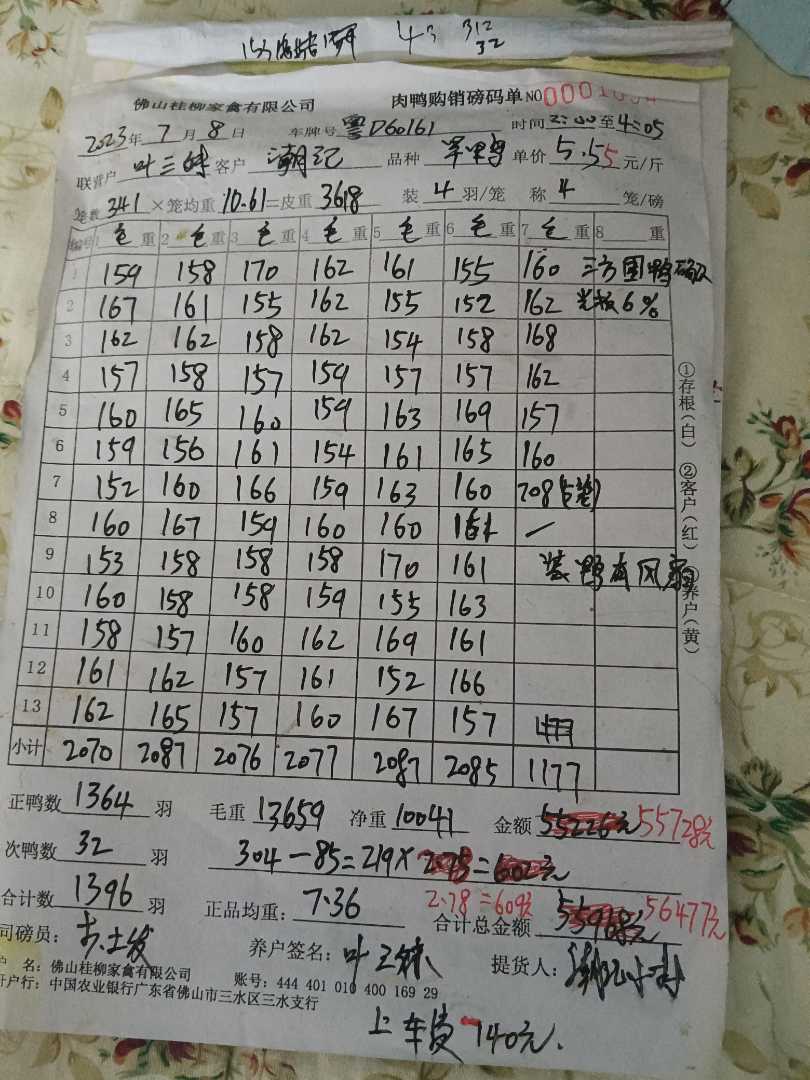 43 312
32
佛山桂柳家禽有限公司 肉鸭购销磅码单 NO
2023年 7月 8日 车牌号 粤D60161 时间 2:00至4:05
联营户 叶三妹 客户 潮记 品种 单价 5.55 元/斤
笼数 341 ×笼均重 10.61=皮重 3618 装 4 羽/笼 称 4 笼/磅
编号 1 毛 重 2 毛 重 3 毛 重 4 毛 重 5 毛 重 6 毛 重 7 毛 重 8 重
1 159 158 170 162 161 155 160
2 167 161 155 162 155 152 162 6%
3 162 162 158 162 154 158 168
4 157 158 157 159 157 157 162
5 160 165 160 159 163 169 157
6 159 156 161 154 161 165 160
7 152 160 166 159 163 160 208
8 160 167 159 160 160 161 —
9 153 158 158 158 170 161 装鸭有风扇
10 160 158 158 159 155 163
11 158 157 160 162 169 161
12 161 162 157 161 152 166
13 162 165 157 160 167 157
小计 2070 2087 2076 2077 2087 2085 1177
正鸭数 1364 羽 毛重 13659 净重 10041 金额 55226元 55728元
次鸭数 32 羽 304-85=219×2.75=602元
2.78=609元
合计数 1396 羽 正品均重: 7.36 合计总金额 56477元
司磅员: 养户签名: 叶三妹 提货人:
户 名: 佛山桂柳家禽有限公司 账号: 444 401 010 400 169 29
开户行: 中国农业银行广东省佛山市三水区三水支行
上车费 140元.
①存根(白) ②客户(红) ③养户(黄)